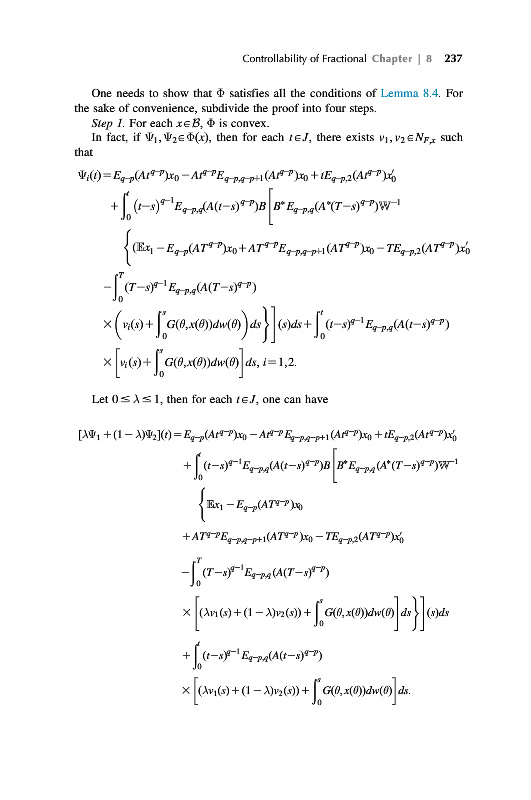 Controllability of Fractional Chapter | 8 237
One needs to show that Φ satisfies all the conditions of Lemma 8.4. For
the sake of convenience, subdivide the proof into four steps.
Step 1. For each x∈B, Φ is convex.
In fact, if Ψ₁, Ψ₂∈Φ(x), then for each t∈J, there exists ν₁, ν₂∈N_{F,x} such
that
Ψᵢ(t) = E_{q−p}(At^{q−p})x₀ − At^{q−p}E_{q−p,q−p+1}(At^{q−p})x₀ + tE_{q−p,2}(At^{q−p})x₀′
+ ∫₀ᵗ (t−s)^{q−1}E_{q−p,q}(A(t−s)^{q−p})B[B*E_{q−p,q}(A*(T−s)^{q−p})𝕎⁻¹
{(𝔼x₁ − E_{q−p}(AT^{q−p})x₀ + AT^{q−p}E_{q−p,q−p+1}(AT^{q−p})x₀ − TE_{q−p,2}(AT^{q−p})x₀′
− ∫₀ᵀ (T−s)^{q−1}E_{q−p,q}(A(T−s)^{q−p})
× (νᵢ(s) + ∫₀ˢ G(θ,x(θ))dw(θ))ds}](s)ds + ∫₀ᵗ (t−s)^{q−1}E_{q−p,q}(A(t−s)^{q−p})
× [νᵢ(s) + ∫₀ˢ G(θ,x(θ))dw(θ)]ds, i=1,2.
Let 0 ≤ λ ≤ 1, then for each t∈J, one can have
[λΨ₁ + (1 − λ)Ψ₂](t) = E_{q−p}(At^{q−p})x₀ − At^{q−p}E_{q−p,q−p+1}(At^{q−p})x₀ + tE_{q−p,2}(At^{q−p})x₀′
+ ∫₀ᵗ (t−s)^{q−1}E_{q−p,q}(A(t−s)^{q−p})B[B*E_{q−p,q}(A*(T−s)^{q−p})𝕎⁻¹
{𝔼x₁ − E_{q−p}(AT^{q−p})x₀
+ AT^{q−p}E_{q−p,q−p+1}(AT^{q−p})x₀ − TE_{q−p,2}(AT^{q−p})x₀′
− ∫₀ᵀ (T−s)^{q−1}E_{q−p,q}(A(T−s)^{q−p})
× [(λν₁(s) + (1 − λ)ν₂(s)) + ∫₀ˢ G(θ,x(θ))dw(θ)]ds}](s)ds
+ ∫₀ᵗ (t−s)^{q−1}E_{q−p,q}(A(t−s)^{q−p})
× [(λν₁(s) + (1 − λ)ν₂(s)) + ∫₀ˢ G(θ, x(θ))dw(θ)]ds.